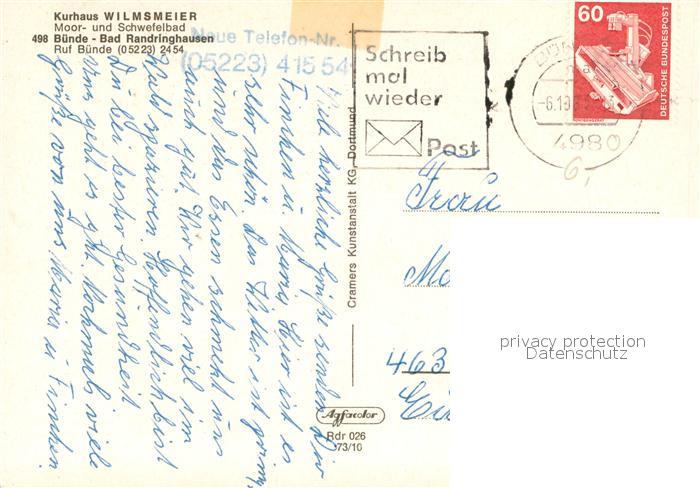 Kurhaus WILMSMEIER
Moor- und Schwefelbad
498 Bünde - Bad Randringhausen
Ruf Bünde (05223) 2454
Neue Telefon-Nr.
(05223) 41554
Schreib
mal
wieder
Post
60
DEUTSCHE BUNDESPOST
-6.10.8
4980
6,
Viele herzliche Grüße senden Dir
Finchen u. Maria. Hier ist es
sehr schön. Das Wetter ist prima,
und das Essen schmekt uns
auch gut. Wir gehen viel im
Wald spazieren. Hoffendlich bist
Du bei bester Gesundheit
uns geht es gut. Nochmals viele
Grüße von uns Maria u. Finchen
Cramers Kunstanstalt KG, Dortmund
Frau
Mo
463
Agfacolor
Rdr 026
73/10
privacy protection
Datenschutz